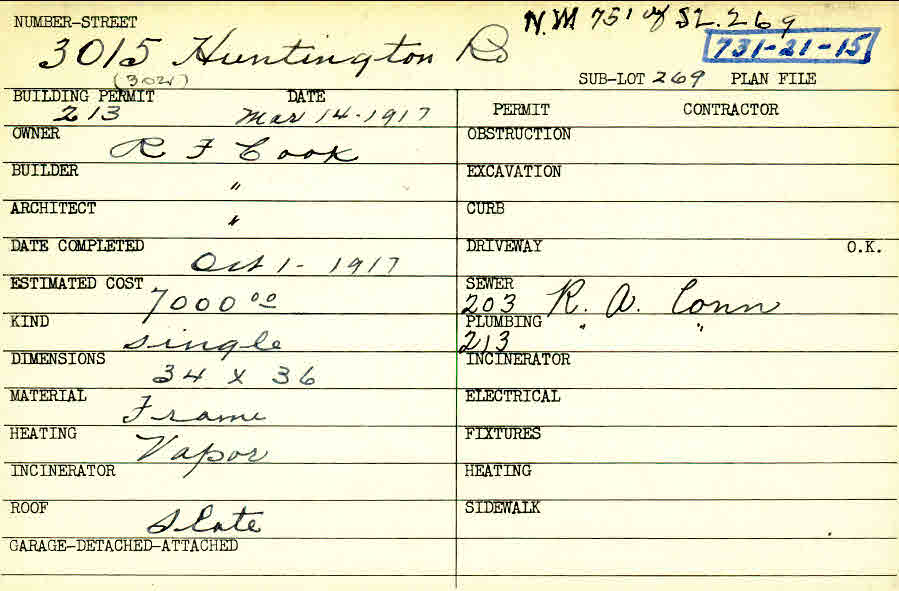 NUMBER-STREET
N.W 75' of S.L. 269
3015 Huntington Rd
731-21-15
(3021)
SUB-LOT 269 PLAN FILE
BUILDING PERMIT DATE
213 Mar 14-1917
PERMIT CONTRACTOR
OWNER
R F Cook
OBSTRUCTION
BUILDER
"
EXCAVATION
ARCHITECT
"
CURB
DATE COMPLETED
Oct 1-1917
DRIVEWAY O.K.
ESTIMATED COST
7000 00
SEWER
203 R. A. Conn
KIND
single
PLUMBING " "
213
DIMENSIONS
34 x 36
INCINERATOR
MATERIAL
Frame
ELECTRICAL
HEATING
Vapor
FIXTURES
INCINERATOR
HEATING
ROOF
Slate
SIDEWALK
GARAGE-DETACHED-ATTACHED